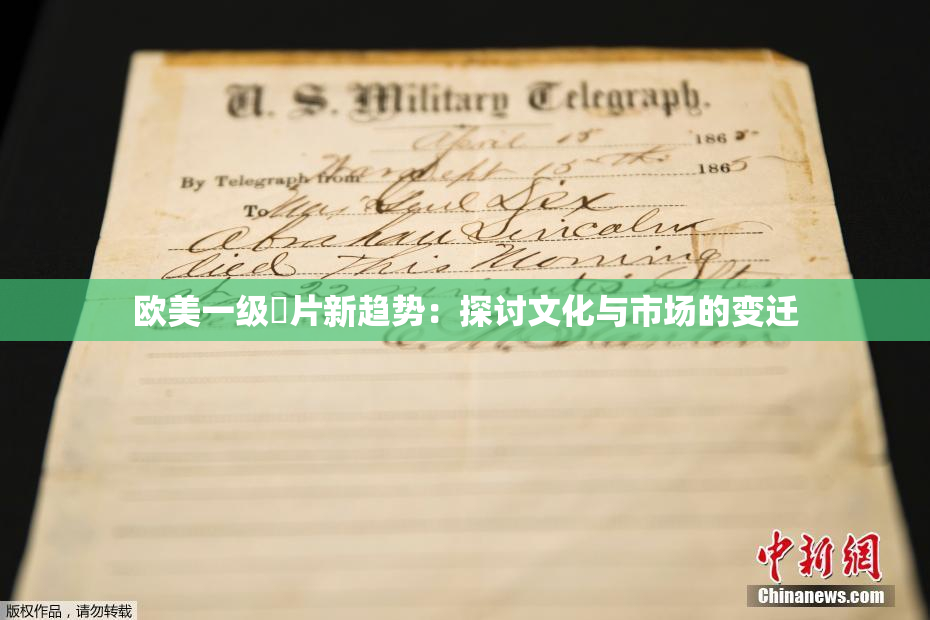 U. S. Military Telegraph.
April 15 1865
By Telegraph from War Dept 15th 1865
To Maj Genl Dix
Abraham Lincoln
died This Morning
at 22 minutes after
欧美一级片新趋势：探讨文化与市场的变迁
E. M. Stanton
中新网
Chinanews.com
版权作品，请勿转载